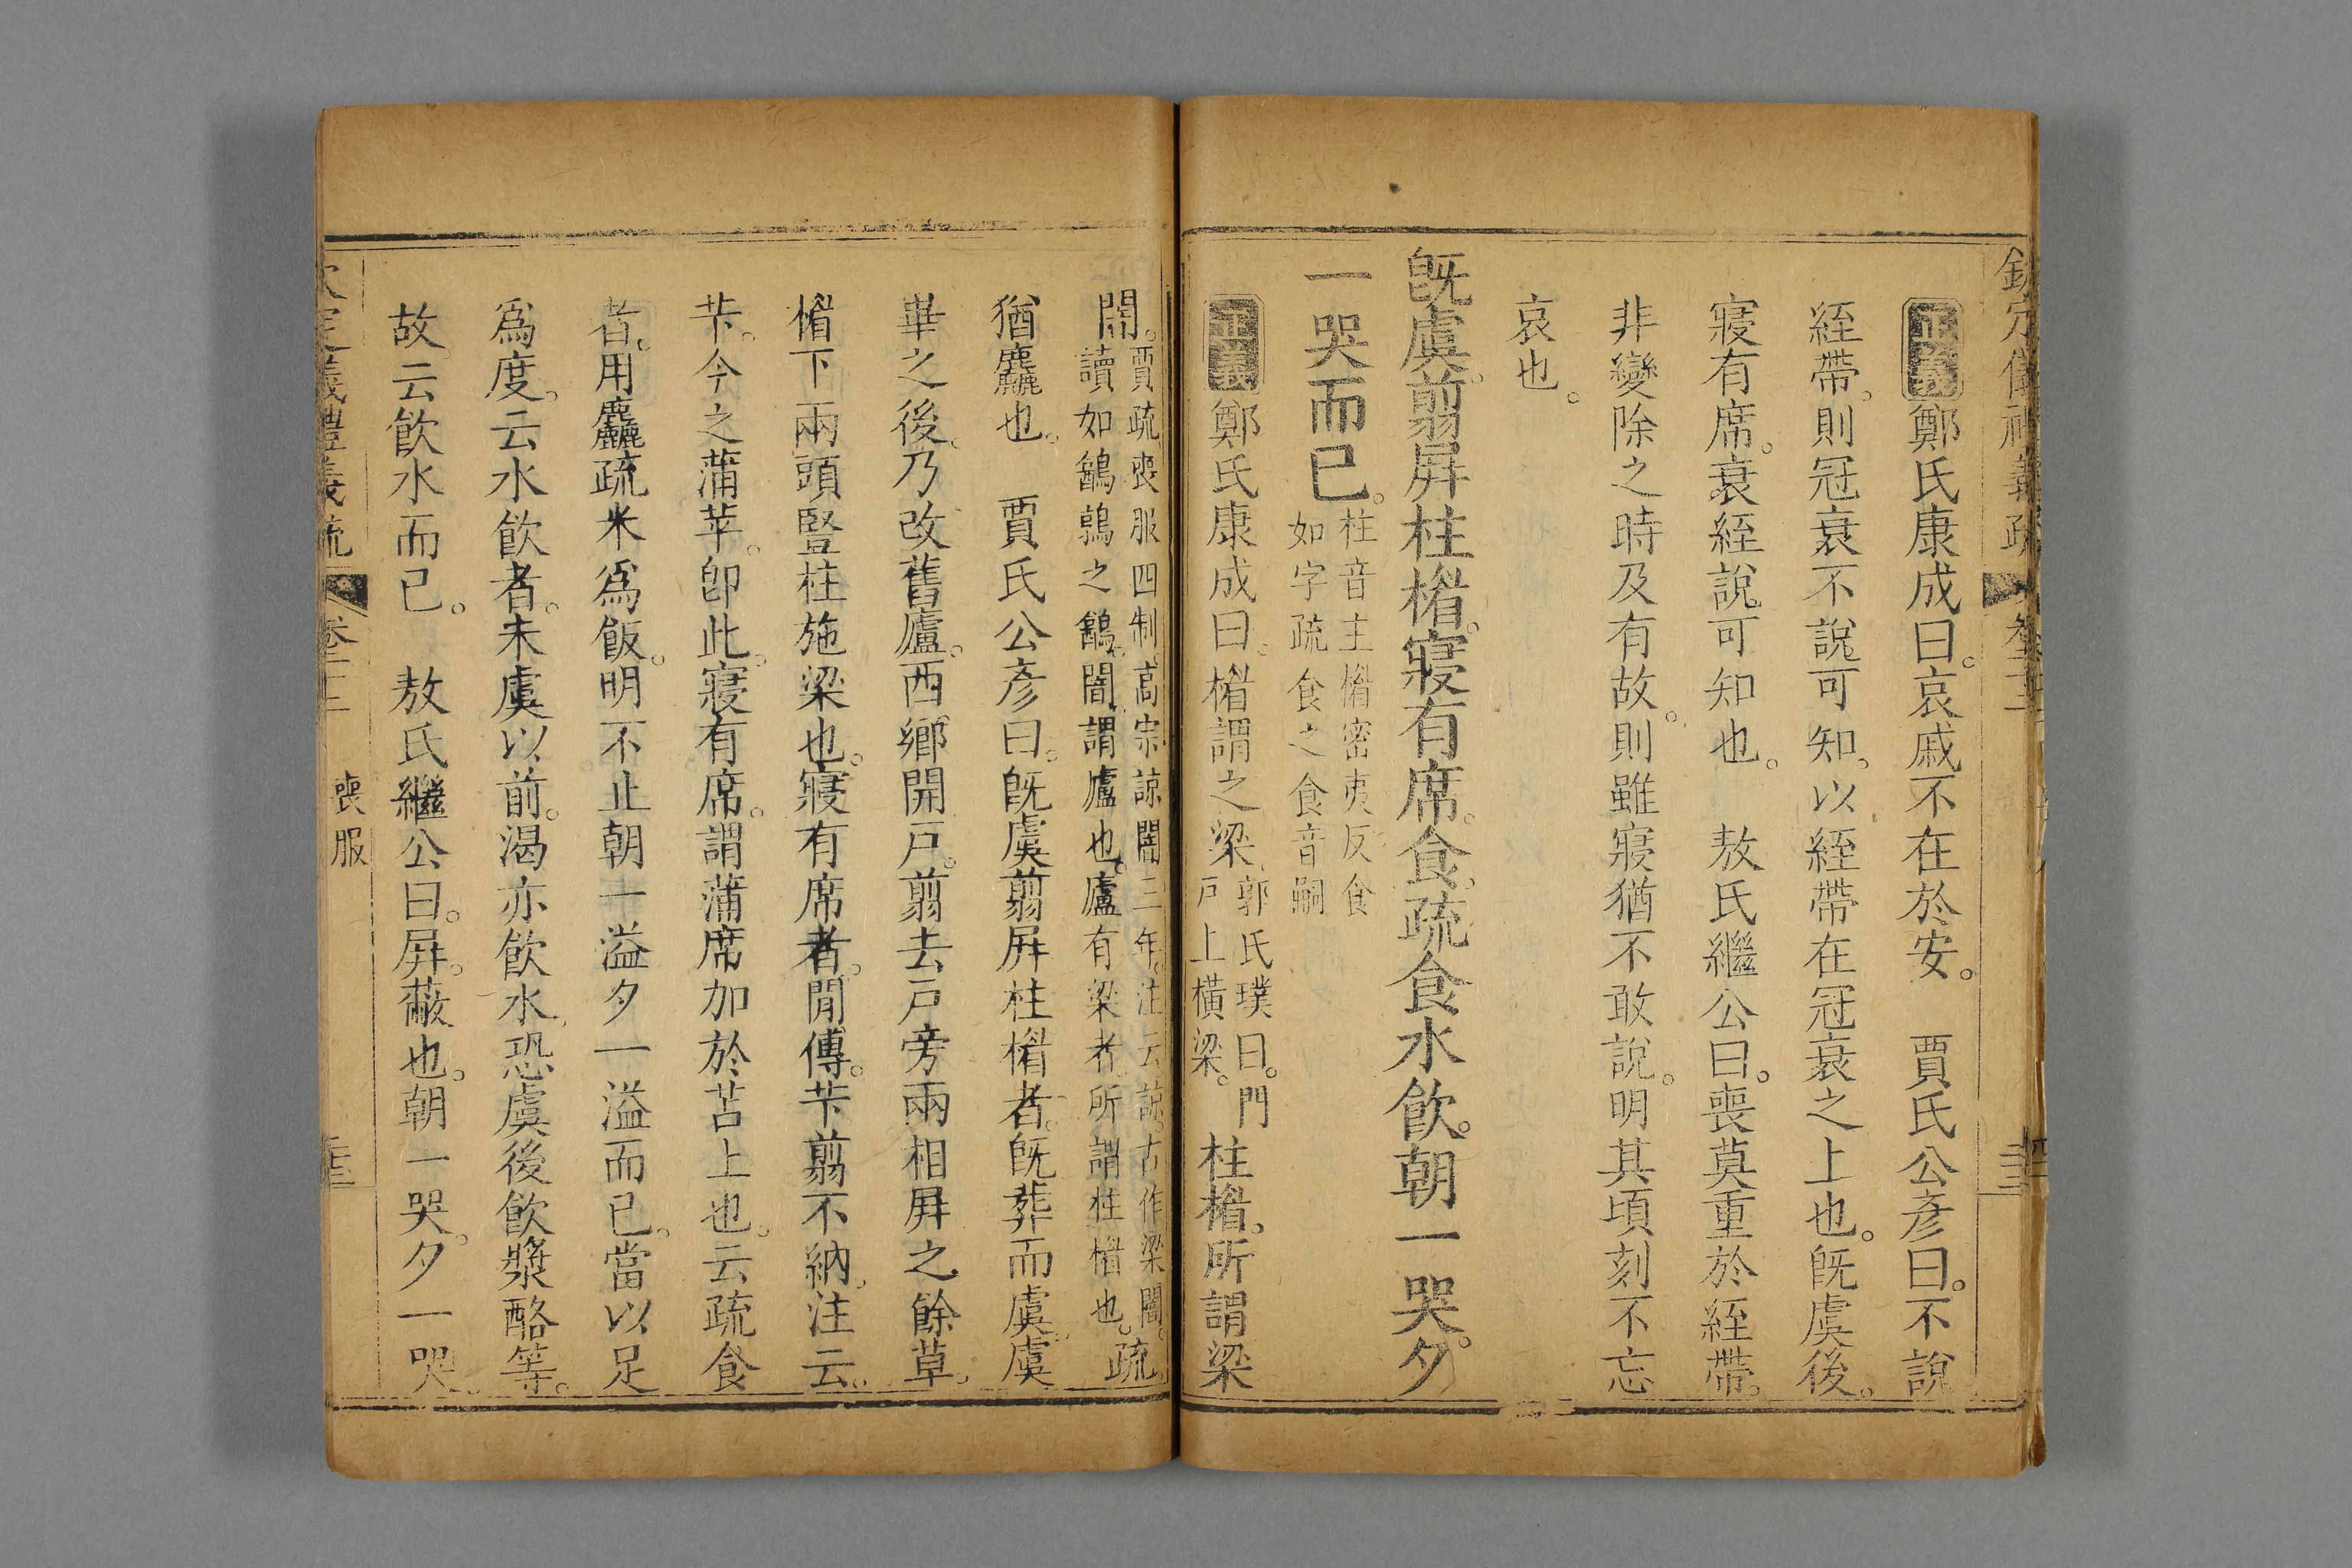 正義鄭氏康成曰。哀戚不在於安。　賈氏公彥曰。不說
絰帶。則冠衰不說可知。以絰帶在冠衰之上也。旣虞後。
寢有席。衰絰說可知也。　敖氏繼公曰。喪莫重於絰帶。
非變除之時及有故。則雖寢猶不敢說。明其頃刻不忘
哀也。
旣虞。翦屛柱楣。寢有席。食疏食。水飲。朝一哭。夕
一哭而已。
柱音主楣密夷反食
如字疏食之食音嗣
正義鄭氏康成曰。楣謂之梁。
郭氏璞曰。門
戸上橫梁。
柱楣。所謂梁
闇。
賈疏喪服四制。高宗諒闇三年。注云諒。古作梁闇。
讀如鶉鷯之鷯。闇謂廬也。廬有梁者。所謂柱楣也。
疏。
猶麤也。　賈氏公彥曰。旣虞翦屛柱楣者。旣葬而虞。虞
畢之後。乃改舊廬。西鄉開戸。翦去戸旁兩相屛之餘草。
楣下兩頭豎柱施梁也。寢有席者。閒傳。芐翦不納。注云。
芐。今之蒲苹。卽此。寢有席。謂蒲席加於苫上也。云疏食
者。用麤疏米爲飯。明不止朝一溢夕一溢而已。當以足
爲度。云水飲者。未虞以前。渴亦飲水。恐虞後飲漿酪等。
故云飲水而已。　敖氏繼公曰。屛。蔽也。朝一哭。夕一哭。
義禮義疏　卷二十二　喪服